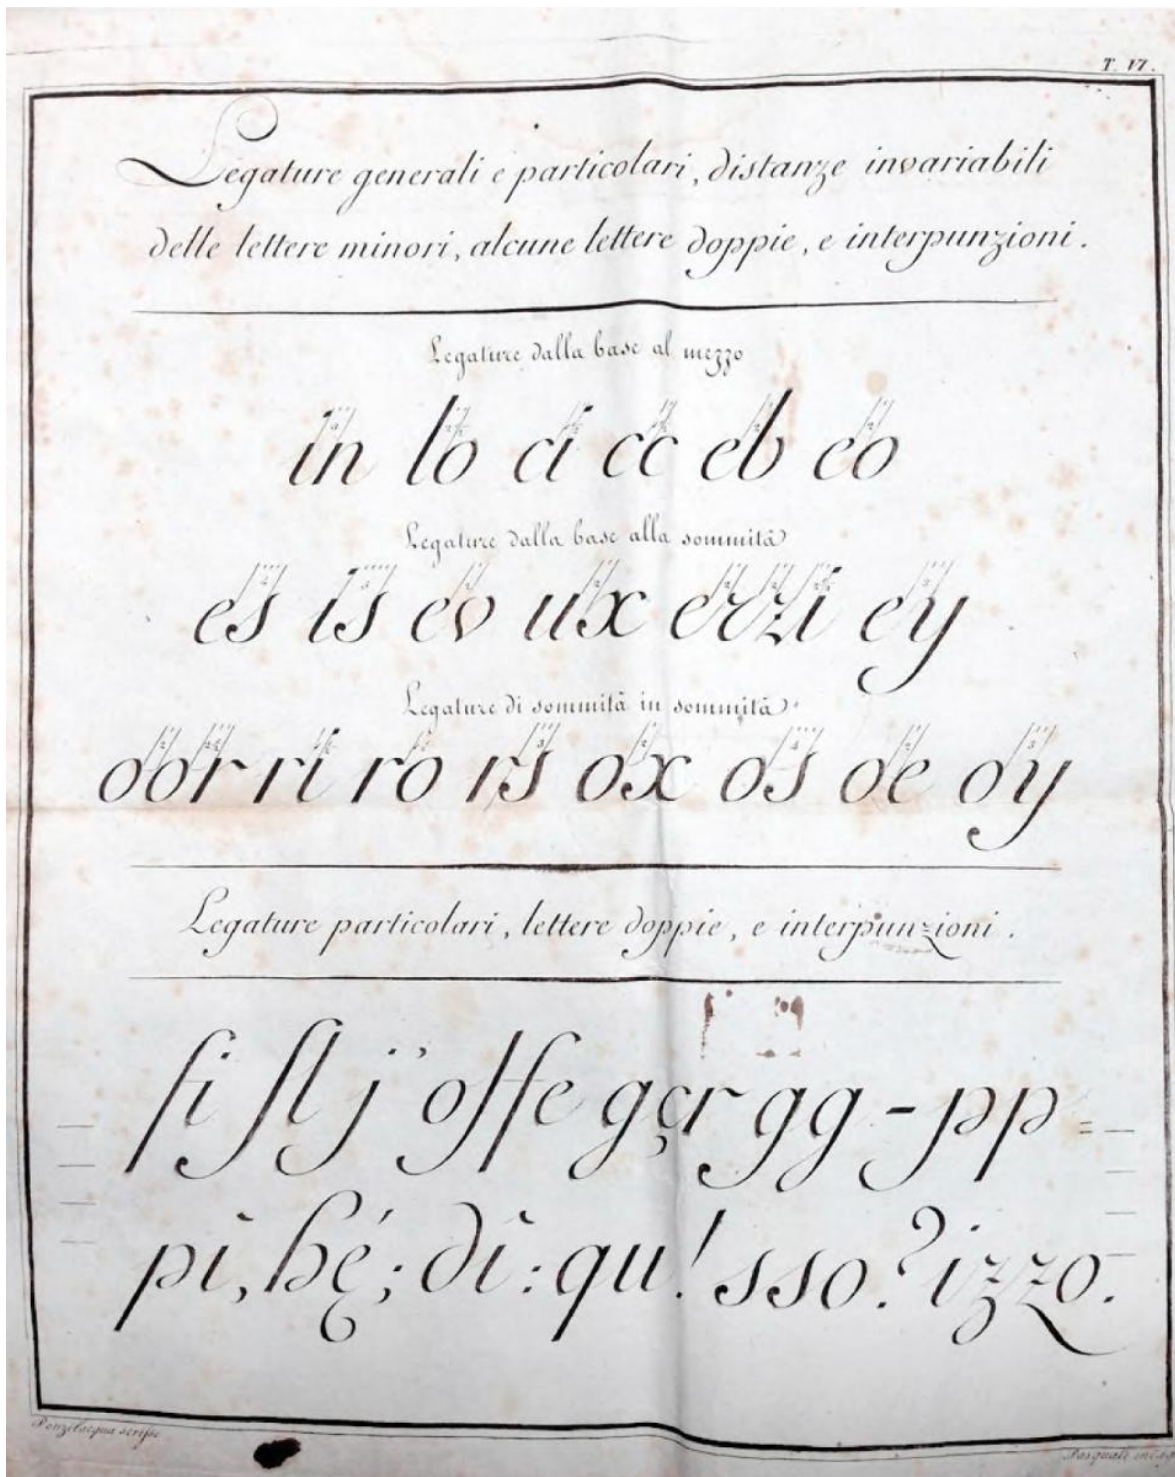 T. VI.
Legature generali e particolari, distanze invariabili
delle lettere minori, alcune lettere doppie, e interpunzioni.
Legature dalla base al mezzo
in lo ci cc eb eo
Legature dalla base alla sommità
es is ev ux erzi ey
Legature di sommità in sommità
oor ri ro rs ox os oe oy
Legature particolari, lettere doppie, e interpunzioni.
fi ſl j' offe gçr gg - pp =
pì, hé; dì: qu! sso? izzo.
Ponzilacqua scriſse
Pasquali